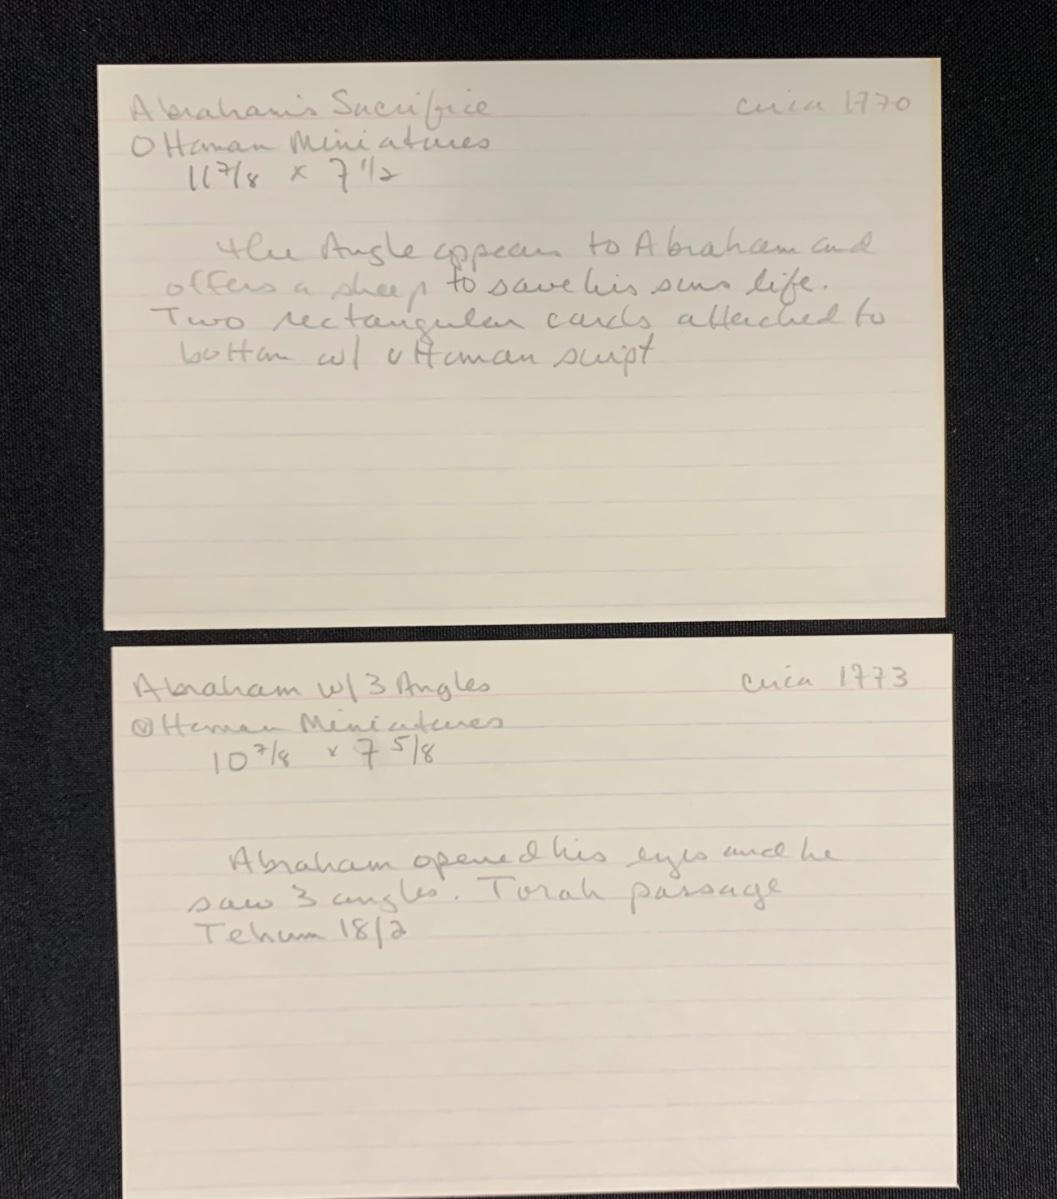 Abraham's Sacrifice circa 1770
Ottoman Miniatures
11 7/8 x 7 1/2
the Angle appears to Abraham and
offers a sheep to save his sons life.
Two rectangular cards attached to
bottom w/ ottoman script
Abraham w/ 3 Angles circa 1773
Ottoman Miniatures
10 7/8 x 7 5/8
Abraham opened his eyes and he
saw 3 angles. Torah passage
18/2